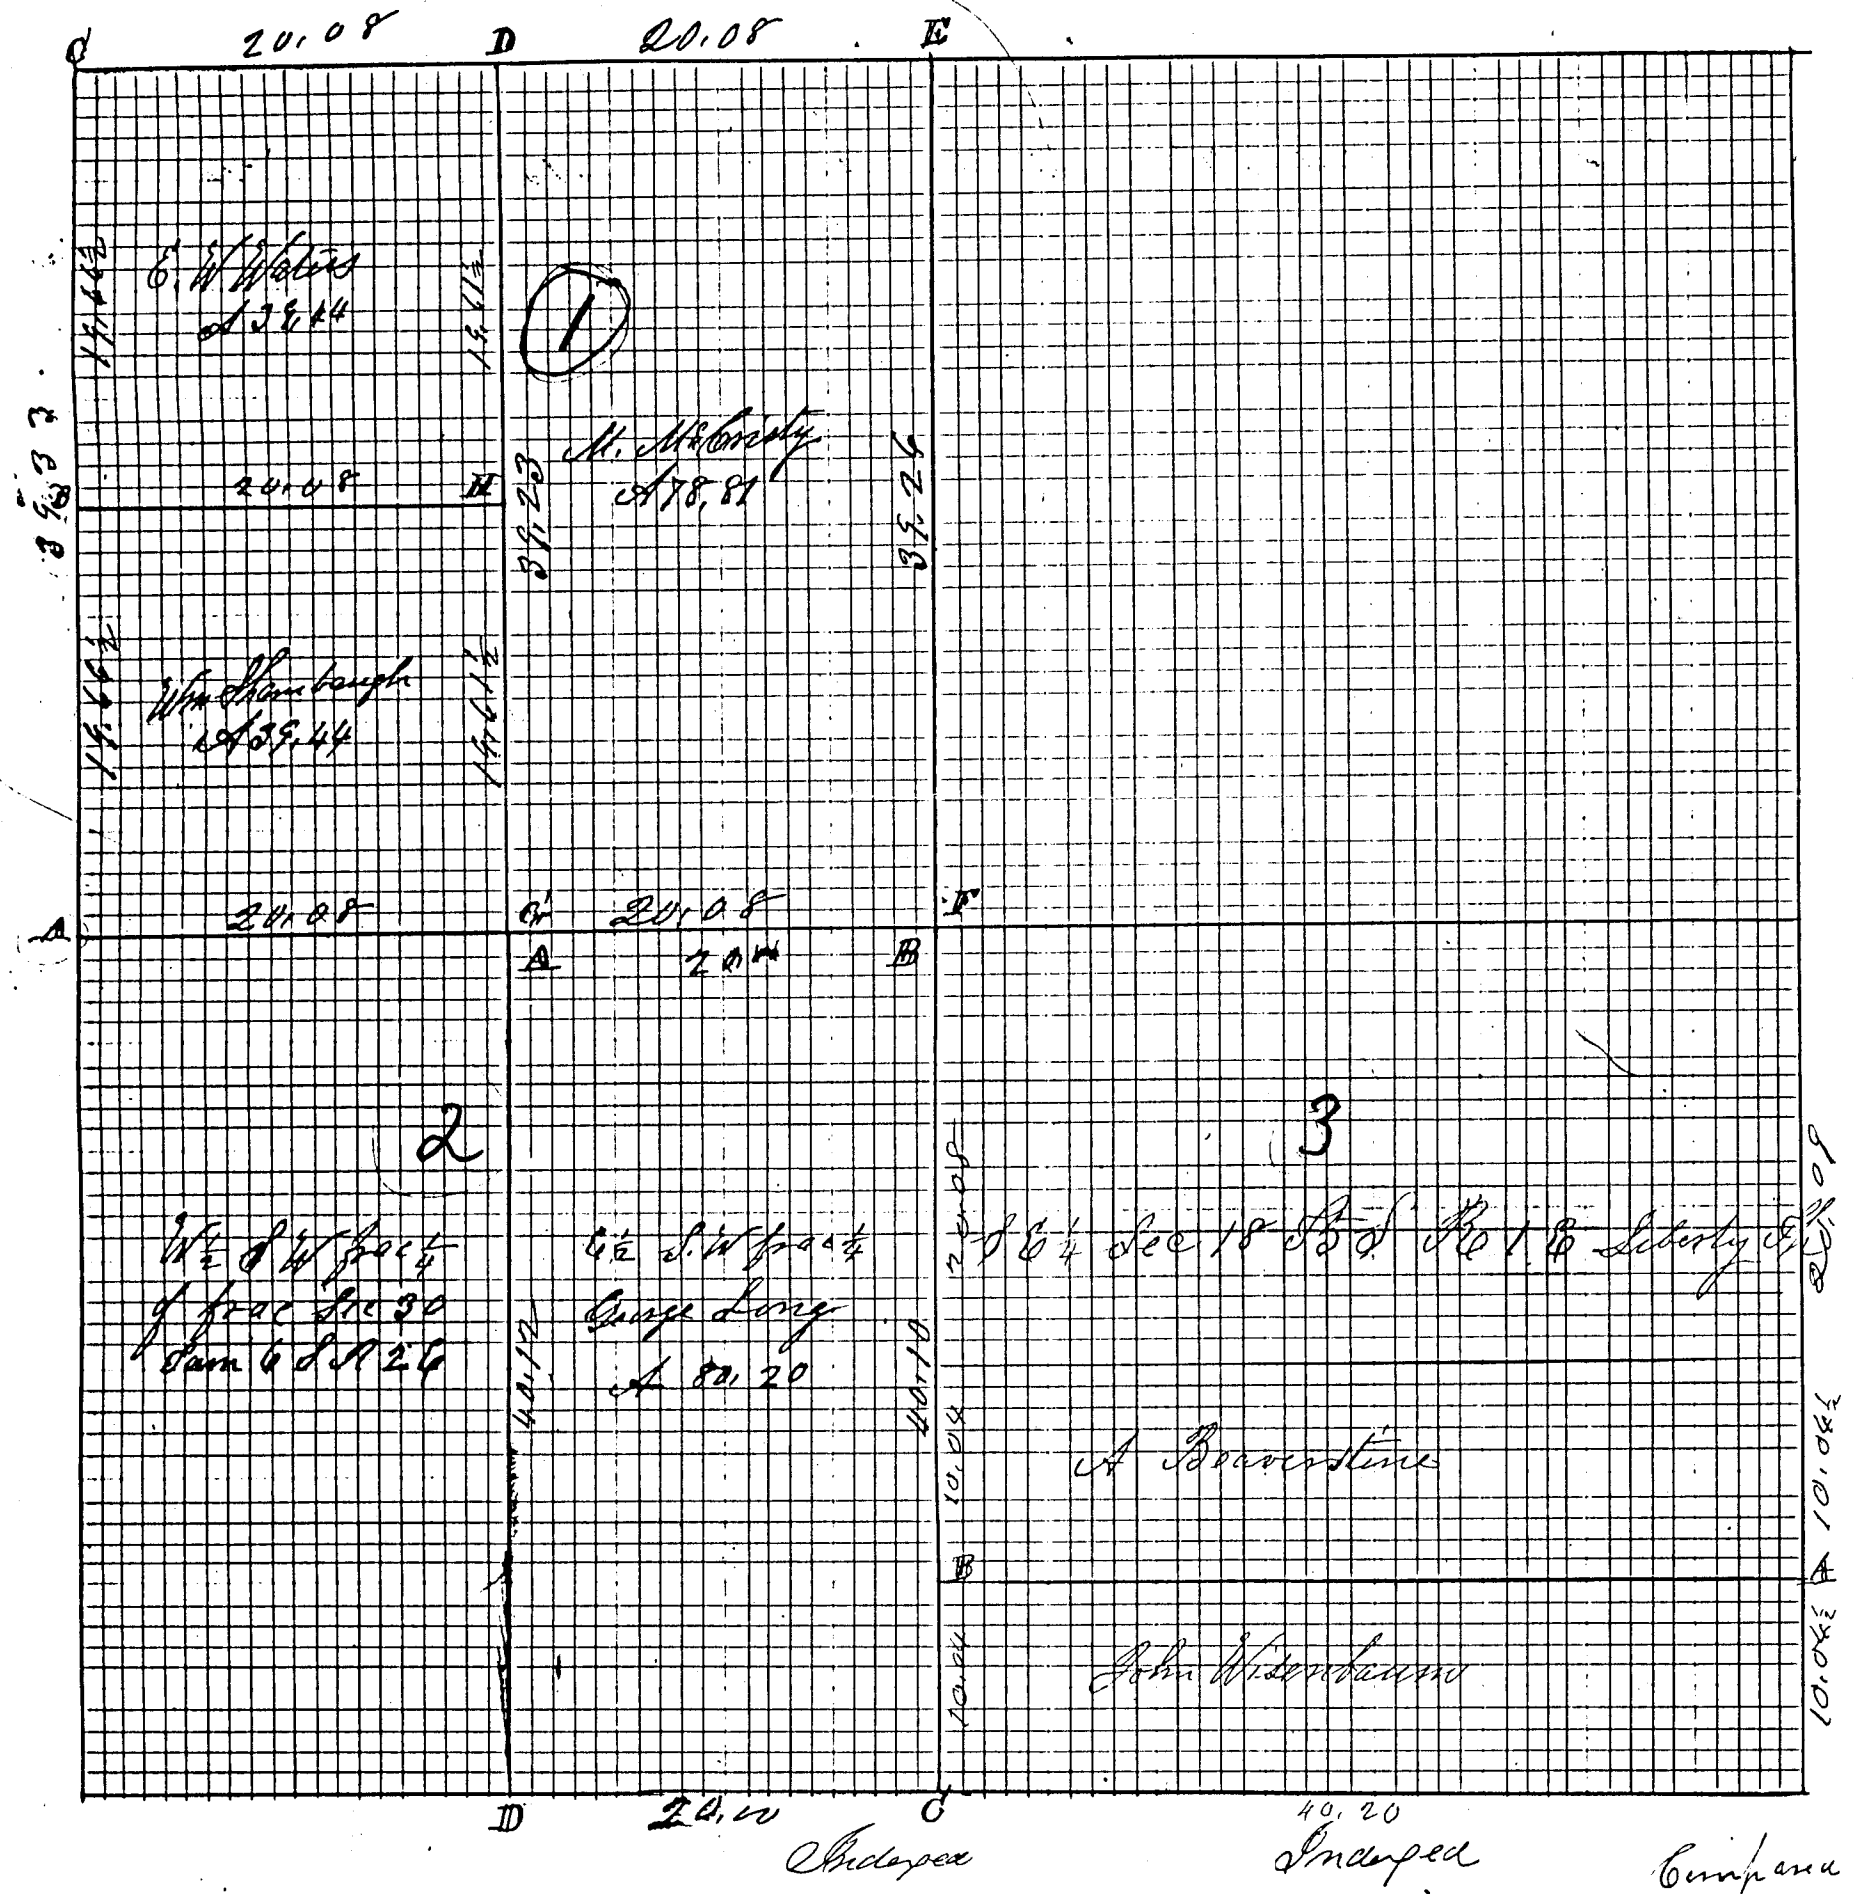 C 20.08 D 20.08 E
19.66½
E. W Waters
A 39.44
19.61½
1
39.33
B
20.08 H
39.23
M. McCristy
A 78.81
39.26
19.66½
Wm Shambaugh
A 39.44
19.61½
A 20.08 G 20.08 F
A 20.00 B
2
3
W½ S W frac ¼
of frac Sec 30
6 S R 2 E
E½ S.W frac ¼
George Long
A 80.20
40.12
40.10
20.08
S E ¼ Sec 18 T 5 S R 1 E Liberty Tp
20.09
10.04
A Beaverstine
10.04½
B
A
10.04
John Wisenbaum
10.04½
D 20.00 C 40.20
Indexed Indexed Compared